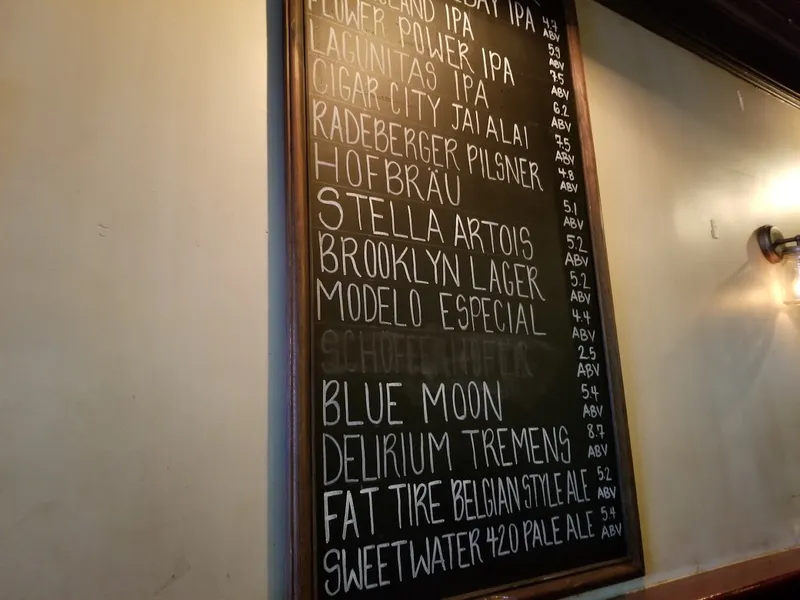 IPA 4.7 ABV
IPA 5.9 ABV
FLOWER POWER IPA 7.5 ABV
LAGUNITAS IPA 6.2 ABV
CIGAR CITY JAI ALAI 7.5 ABV
RADEBERGER PILSNER 4.8 ABV
HOFBRÄU 5.1 ABV
STELLA ARTOIS 5.2 ABV
BROOKLYN LAGER 5.2 ABV
MODELO ESPECIAL 4.4 ABV
SCHOFFERHOFER 2.5 ABV
BLUE MOON 5.4 ABV
DELIRIUM TREMENS 8.7 ABV
FAT TIRE BELGIAN STYLE ALE 5.2 ABV
SWEETWATER 420 PALE ALE 5.4 ABV